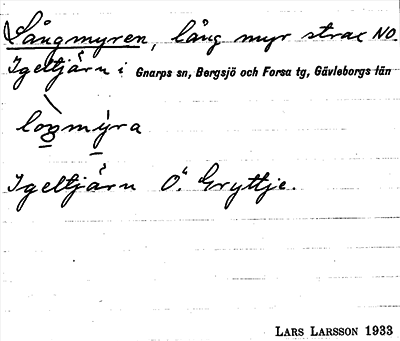 Långmyren, lång myr strax NO.
Igeltjärn i Gnarps sn, Bergsjö och Forsa tg, Gävleborgs län
loŋmýra
Igeltjärn Ö. Gryttje.
LARS LARSSON 1933